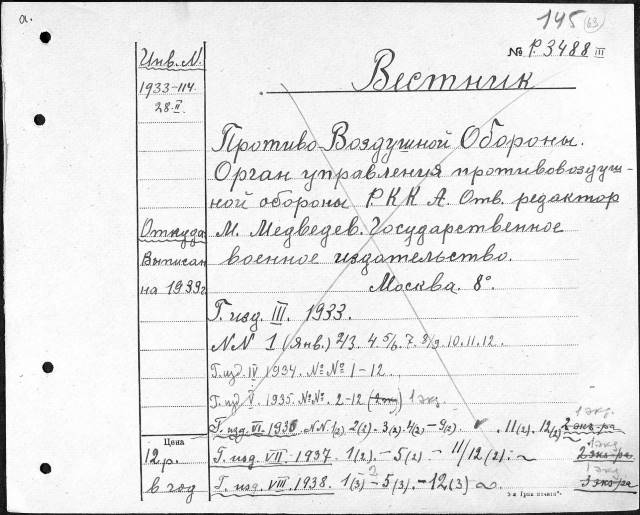 а.
145 (63)
№ Р. 3488 III
Инв. N.
1933-114.
28. II
Вестник
Противо-Воздушной Обороны.
Орган управления противовоздуш-
ной обороны Р К К А. Отв. редактор
М. Медведев. Государственное
военное издательство.
Москва. 8°.
Откуда
Выписан
на 1939г
Г. изд. III. 1933.
NN 1 (Янв.) 2/3. 4 5/6. 7. 8/9. 10. 11. 12.
Г. изд. IV 1934. №№ 1-12.
Г. изд. V. 1935. №№. 2-12 1 экз.
Г. изд. VI. 1936 NN. 1(2) 2(2). 3(2). 4(2) - 9(2). 11(2). 12(2) 2 экз-ра
1 экз.
Цена
12 р.
в год
Г. изд. VII. 1937. 1(2). - 5(2) - 11/12 (2). 2 экз-ра
1 экз.
Г. изд. VIII. 1938. 1(3) - 5(3). - 12(3) 3 экз-ра
1 экз.